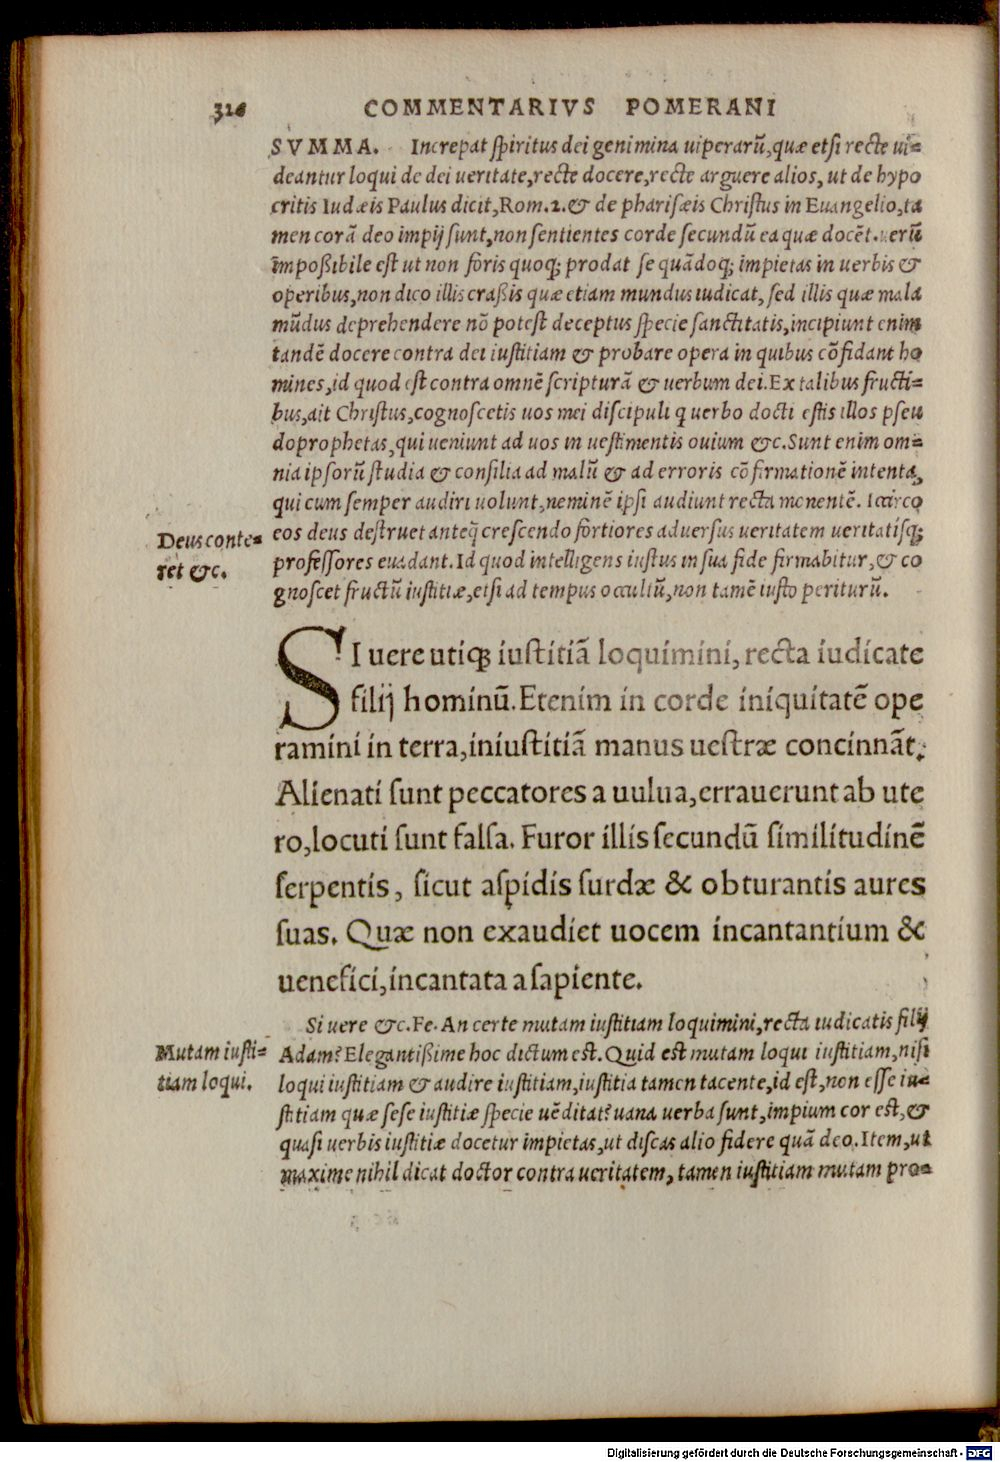 316 COMMENTARIVS POMERANI
SVMMA. Increpat ſpiritus dei genimina uiperarũ,quæ etſi recte ui-
deantur loqui de dei ueritate,recte docere,recte arguere alios, ut de hypo
critis Iudæis Paulus dicit,Rom.2.& de phariſæis Chriſtus in Euangelio,ta
men corã deo impij ſunt,non ſentientes corde ſecundũ ea quæ docẽt.uerũ
impoßibile eſt ut non foris quoq; prodat ſe quãdoq; impietas in uerbis &
operibus,non dico illis craßis quæ etiam mundus iudicat, ſed illis quæ mala
mũdus deprehendere nõ poteſt deceptus ſpecie ſanctitatis,incipiunt enim
tandẽ docere contra dei iuſtitiam & probare opera in quibus cõfidant ho
mines,id quod eſt contra omnẽ ſcripturã & uerbum dei.Ex talibus fructi-
bus,ait Chriſtus,cognoſcetis uos mei diſcipuli q uerbo docti eſtis illos pſeu
doprophetas,qui ueniunt ad uos in ueſtimentis ouium &c.Sunt enim om-
nia ipſorũ ſtudia & conſilia ad malũ & ad erroris cõfirmationẽ intenta,
qui cum ſemper audiri uolunt,neminẽ ipſi audiunt recta monentẽ. Iccirco
Deus conte-
ret &c.
eos deus deſtruet anteq̃ creſcendo fortiores aduerſus ueritatem ueritatiſq;
profeſſores euadant.Id quod intelligens iuſtus in ſua fide firmabitur,& co
gnoſcet fructũ iuſtitiæ,etſi ad tempus occultũ,non tamẽ iuſto periturũ.
SI uere utiq; iuſtitiã loquimini, recta iudicate
filij hominũ.Etenim in corde iniquitatẽ ope
ramini in terra,iniuſtitiã manus ueſtræ concinnãt.
Alienati ſunt peccatores a uulua,errauerunt ab ute
ro,locuti ſunt falſa. Furor illis ſecundũ ſimilitudinẽ
ſerpentis, ſicut aſpidis ſurdæ & obturantis aures
ſuas. Quæ non exaudiet uocem incantantium &
uenefici,incantata a ſapiente.
Si uere &c.Fe. An certe mutam iuſtitiam loquimini,recta iudicatis filij
Mutam iuſti-
tiam loqui.
Adam? Elegantißime hoc dictum eſt. Quid eſt mutam loqui iuſtitiam,niſi
loqui iuſtitiam & audire iuſtitiam,iuſtitia tamen tacente,id eſt,non eſſe iu-
ſtitiam quæ ſeſe iuſtitiæ ſpecie uẽditat? uana uerba ſunt,impium cor eſt,&
quaſi uerbis iuſtitiæ docetur impietas,ut diſcas alio fidere quã deo. Item,ut
maxime nihil dicat doctor contra ueritatem, tamen iuſtitiam mutam pro-
Digitalisierung gefördert durch die Deutsche Forschungsgemeinschaft - DFG